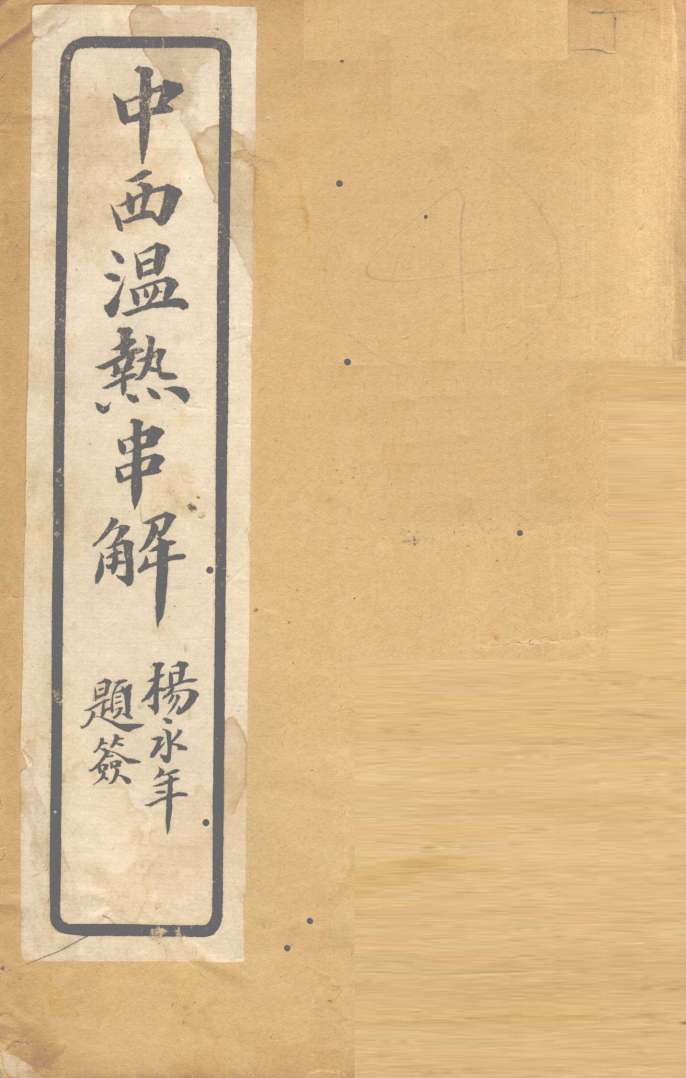 中西温熱串解
楊永年
題簽